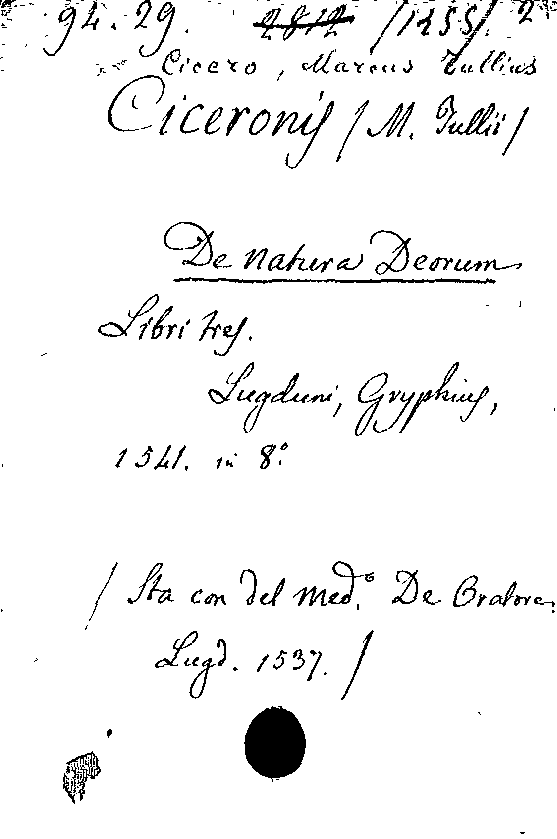 94.29. 2812 /1255/. 2
Cicero, Marcus Tullius
Ciceronis / M. Tullii /
De natura Deorum
Libri tres.
Lugduni, Gryphius,
1541. in 8°
/ Sta con del med.° De Oratore.
Lugd. 1537. /